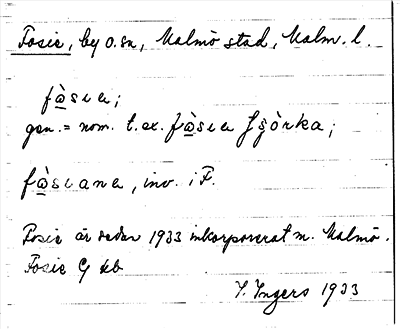 Fosie, by o. sn, Malmö stad, Malm. l.
fὰsια;
gen. = nom. t. ex. fὰsια
fὰsιana, inv. i F.
Fosie är sedan 1933 inkorporerat m. Malmö.
Fosie
I. Ingers 1933